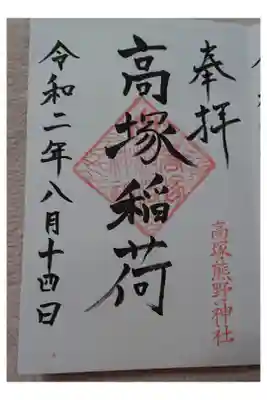 奉拝
高塚熊野神社
高塚稲荷
令和二年八月十四日